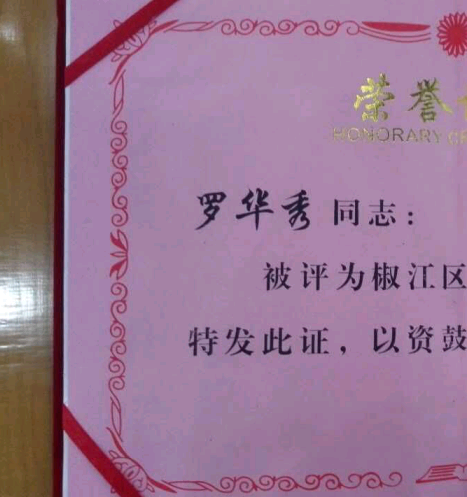 荣誉
HONORARY
罗华秀 同志：
被评为椒江区
特发此证，以资鼓